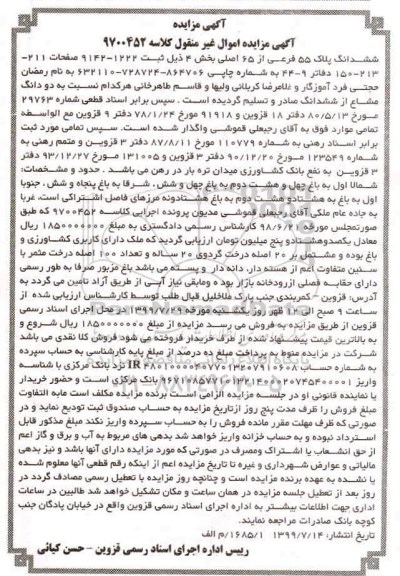 آگهی مزایده
آگهی مزایده اموال غیر منقول کلاسه ۹۷۰۰۴۵۲
ششدانگ پلاک ۵۵ فرعی از ۶۵ اصلی بخش ۴ ذیل ثبت ۱۲۲۲-۹۱۴۲ صفحات ۲۱۱-
۲۱۳-۱۵۰ دفاتر ۹-۴۴ به شماره چاپی ۸۶۴۷۰۶-۷۲۸۷۲۴-۶۳۲۱۱۰ به نام رمضان
حجتی فرد آموزگار و غلامرضا کربلائی ولیها و قاسم طاهرخانی هرکدام نسبت به دو دانگ
مشاع از ششدانگ صادر و تسلیم گردیده است . سپس برابر اسناد قطعی شماره ۲۹۷۶۳
مورخ ۸۰/۵/۱۳ دفتر ۱۸ قزوین و ۹۱۹۱۸ مورخ ۷۸/۱/۲۴ دفتر ۹ قزوین مع الواسطه
تمامی موارد فوق به آقای رجبعلی قموشی واگذار شده است. سپس تمامی مورد ثبت
برابر اسناد رهنی به شماره ۱۱۰۷۷۹ مورخ ۸۷/۸/۱۱ دفتر ۳ قزوین و متمم رهنی به
شماره ۱۲۳۵۴۹ مورخ ۹۰/۱۲/۲۰ دفتر ۳ قزوین و ۱۳۱۰۰۵ مورخ ۹۳/۱۲/۲۷ دفتر
۳ قزوین به نفع بانک کشاورزی میدان تره بار در رهن می باشد . حدود و مشخصات:
شمالا اول به باغ چهل و هشت دوم به باغ چهل و شش ، شرقا به باغ پنجاه و شش ، جنوبا
اول به باغ به هشتادو هشت دوم به باغ هشتادونه مرزهای فاصل اشتراکی است، غربا
به جاده عام ملکی آقای رجبعلی قموشی مدیون پرونده اجرایی کلاسه ۹۷۰۰۴۵۲ که طبق
صورتمجلس مورخه ۹۸/۶/۲۰ کارشناس رسمی دادگستری به مبلغ ۱۸۵۰۰۰۰۰۰۰ ریال
معادل یکصدوهشتادو پنج میلیون تومان ارزیابی گردید که ملک دارای کاربری کشاورزی و
باغ بوده و مشتمل بر ۲۰ اصله درخت گردوی ۲۰ ساله و تعداد ۱۰۰ اصله درخت مثمر با
سنین متفاوت اعم از هسته دار، دانه دار و پسته می باشد باغ مزبور صرفا به طور رسمی
دارای حقابه فصلی ازرودخانه بازار بوده و مابقی نیاز آبی از طریق آزاد تامین می گردد به
آدرس: قزوین - کمربندی جنب پارک ملاخلیل قبال طلب توسط کارشناس ارزیابی شده از
ساعت ۹ صبح الی ۱۲ ظهر روز یکشنبه مورخه ۱۳۹۹/۷/۲۹ در محل اجرای اسناد رسمی
قزوین از طریق مزایده به فروش می رسد مزایده از مبلغ ۱۸۵۰۰۰۰۰۰۰ ریال شروع و
به بالاترین قیمت پیشنهاد شده از طرف خریدار فروخته می شود فروش کلا نقدی می باشد
شرکت در مزایده منوط به پرداخت مبلغ ده درصد از مبلغ پایه کارشناسی به حساب سپرده
به شماره حساب IR نزد بانک مرکزی با شناسه
واریز بانک مرکزی است و حضور خریدار
یا نماینده قانونی او در جلسه مزایده الزامی است برنده مزایده مکلف است مابه التفاوت
مبلغ فروش را ظرف مدت پنج روز ازتاریخ مزایده به حساب صندوق ثبت تودیع نماید و در
صورتی که ظرف مهلت مقرر مانده فروش را به حساب سپرده واریز نکند مبلغ مذکور قابل
استرداد نبوده و به حساب خزانه واریز خواهد شد بدهی های مربوط به آب و برق و گاز اعم
از حق انشعاب یا اشتراک ومصرف در صورتی که مورد مزایده دارای آنها باشد و نیز بدهی
مالیاتی و عوارض شهرداری و غیره تا تاریخ مزایده اعم از اینکه رقم قطعی آنها معلوم شده
یا نشده به عهده برنده مزایده است و چنانچه روز مزایده با تعطیل رسمی مصادف گردد در
روز بعد از تعطیل جلسه مزایده در همان ساعت و مکان تشکیل خواهد شد طالبین در ساعات
اداری جهت اطلاعات بیشتر به اداره اجرای اسناد رسمی قزوین واقع در خیابان پادگان جنب
کوچه بانک صادرات مراجعه نمایند.
تاریخ انتشار: ۱۳۹۹/۷/۱۴ ۱۶۸۵/۱/م الف
رییس اداره اجرای اسناد رسمی قزوین – حسن کیائی